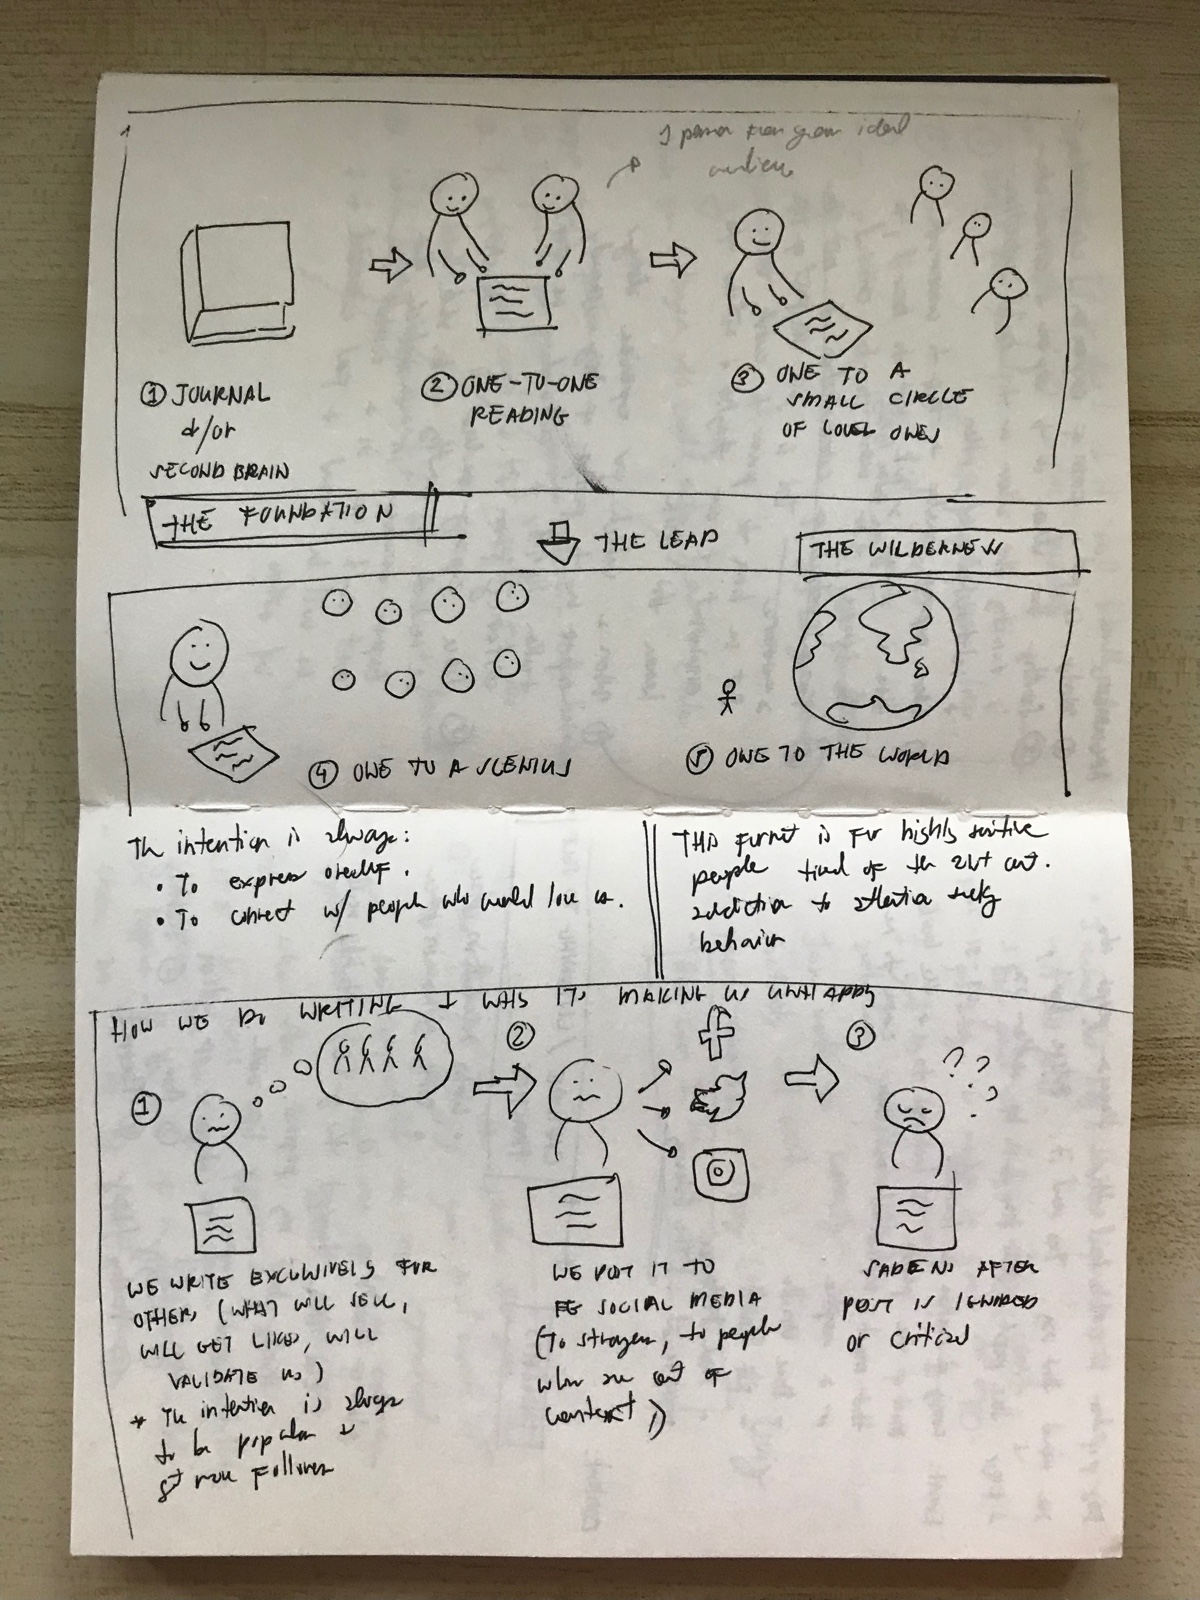 1
1 person from your ideal
audience
① JOURNAL
&/or
SECOND BRAIN
② ONE-TO-ONE
READING
③ ONE TO A
SMALL CIRCLE
OF LOVED ONES
THE FOUNDATION
THE LEAP
THE WILDERNESS
④ ONE TO A SCENIUS
⑤ ONE TO THE WORLD
The intention is always:
• To express oneself.
• To connect w/ people who would love us.
THIS FORMAT is FOR highly sensitive
people tired of the 21st cent.
addiction to attention seeking
behavior
HOW WE DO WRITING + WHY IT'S MAKING US UNHAPPY
①
WE WRITE EXCLUSIVELY FOR
OTHERS (WHAT WILL SELL,
WILL GET LIKES, WILL
VALIDATE US)
* The intention is always
to be popular +
get more followers
②
WE POST IT TO
SOCIAL MEDIA
(To strangers, to people
who are out of
context)
③
? ? ? ?
SADENS AFTER
POST IS IGNORED
or criticized